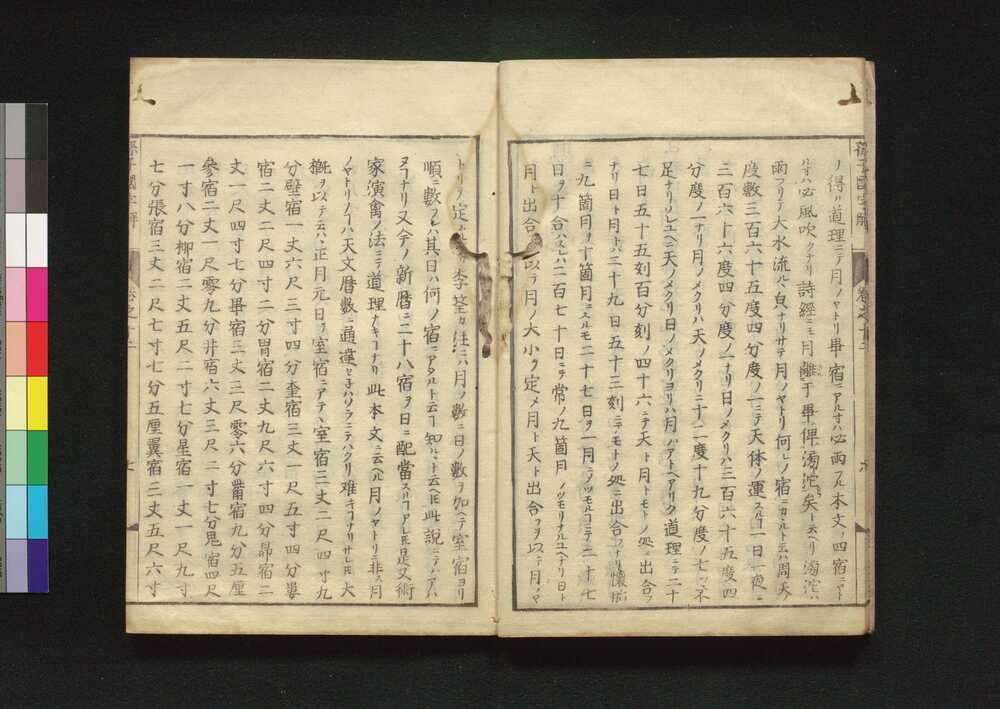 孫子國字解
卷之十二
リ得ル道理ニテ月ノヤトリ畢宿ニアル寸ハ必雨フル本文ノ四宿ニヤトル
寸ハ必風吹クナリ詩經ニモ月離于畢俾滂沱矣ト云ヘリ滂沱ハ
雨フリテ大水流ルヽ皃ナリサテ月ノヤトリ何レノ宿ニカヽルト云ハ周天ノ
度數三百六十五度四分度ノ一ニテ天体ノ運スルヿ一日一夜ニ
三百六十六度四分度ノ一ナリ日ノメクリハ三百六十五度四
分度ノ一ナリ月ノメクリハ天ノメクリニ十二度十九分度ノ七ツ不
足ナリソレユヘニ天ノメクリ日ノメクリヨリハ月ハアトヘアリク道理ニテ二十
七日五十五刻百分刻ノ四十六ニテ天ト月トモトノ処ニ出合フ
ナリ日ト月トハ二十九日五十三刻ニテモトノ処ニ出合フナリ懐妊
ニ九箇月ヲ十箇月ニスルモ二十七日ヲ一月ニツモルユヘニテ二十七
日ヲ十合ハスレハ二百七十日ニテ常ノ九箇月ノツモリナルユヘナリ日ト
月ト出合フヲ以テ月ノ大小ヲ定メ月ト天ト出合フヲ以テ月ノヤ
トリヲ定ル 李筌カ注ニハ月ノ數ニ日ノ數ヲ加ヘテ室宿ヨリ
順ニ數フレハ其日ハ何ノ宿ニアタルト云ヿ知ルヽト云ヘ𪜈此説ニテハアハ
ヌヿナリ又今ノ新暦ニ二十八宿ヲ日ニ配當スルヿアレ𪜈是又術
家演禽ノ法ニテ道理ノナキヿナリ此本文ニ云ヘル月ノヤトリニ非ス月
ノヤトリノヿハ天文暦數ニ通達セネハソラニテハクリ难キヿナリサレ𪜈大
概ヲ以テ云ハ正月元日ヲ室宿ニアテヽ室宿二丈二尺四寸九
分壁宿一丈六尺三寸四分奎宿三丈一尺五寸四分婁
宿二丈二尺四寸二分胃宿二丈九尺六寸四分昴宿二
丈一尺四寸七分畢宿三丈三尺零六分觜宿九分五厘
參宿二丈一尺零九分井宿六丈三尺二寸七分鬼宿四尺
一寸八分柳宿二丈五尺二寸七分星宿一丈一尺九寸
七分張宿三丈二尺七寸七分五厘翼宿三丈五尺六寸
孫子國字解
卷之十二